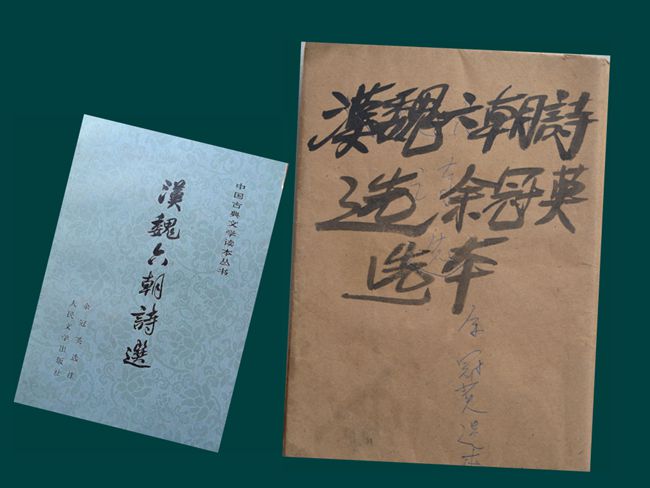 中国古典文学读本丛书
漢魏六朝詩選
余冠英选注
人民文学出版社
漢魏六朝詩
选 余冠英
选本
余冠英选本